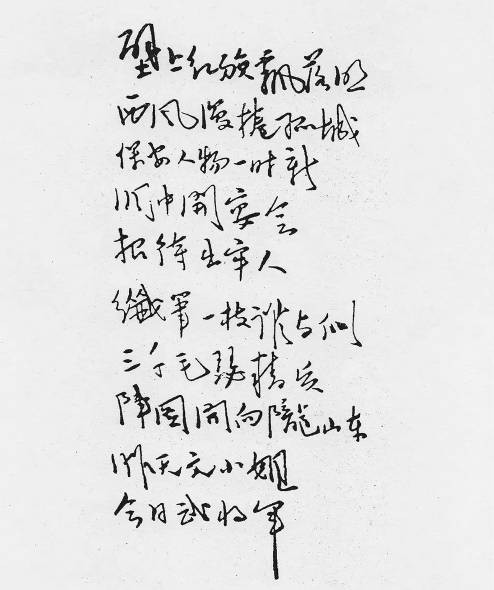 壁上红旗飘落照
西风漫捲孤城
保安人物一时新
洞中開宴会
招待出牢人
纖筆一枝谁与似
三千毛瑟精兵
陣图開向隴山东
昨天文小姐
今日武将军